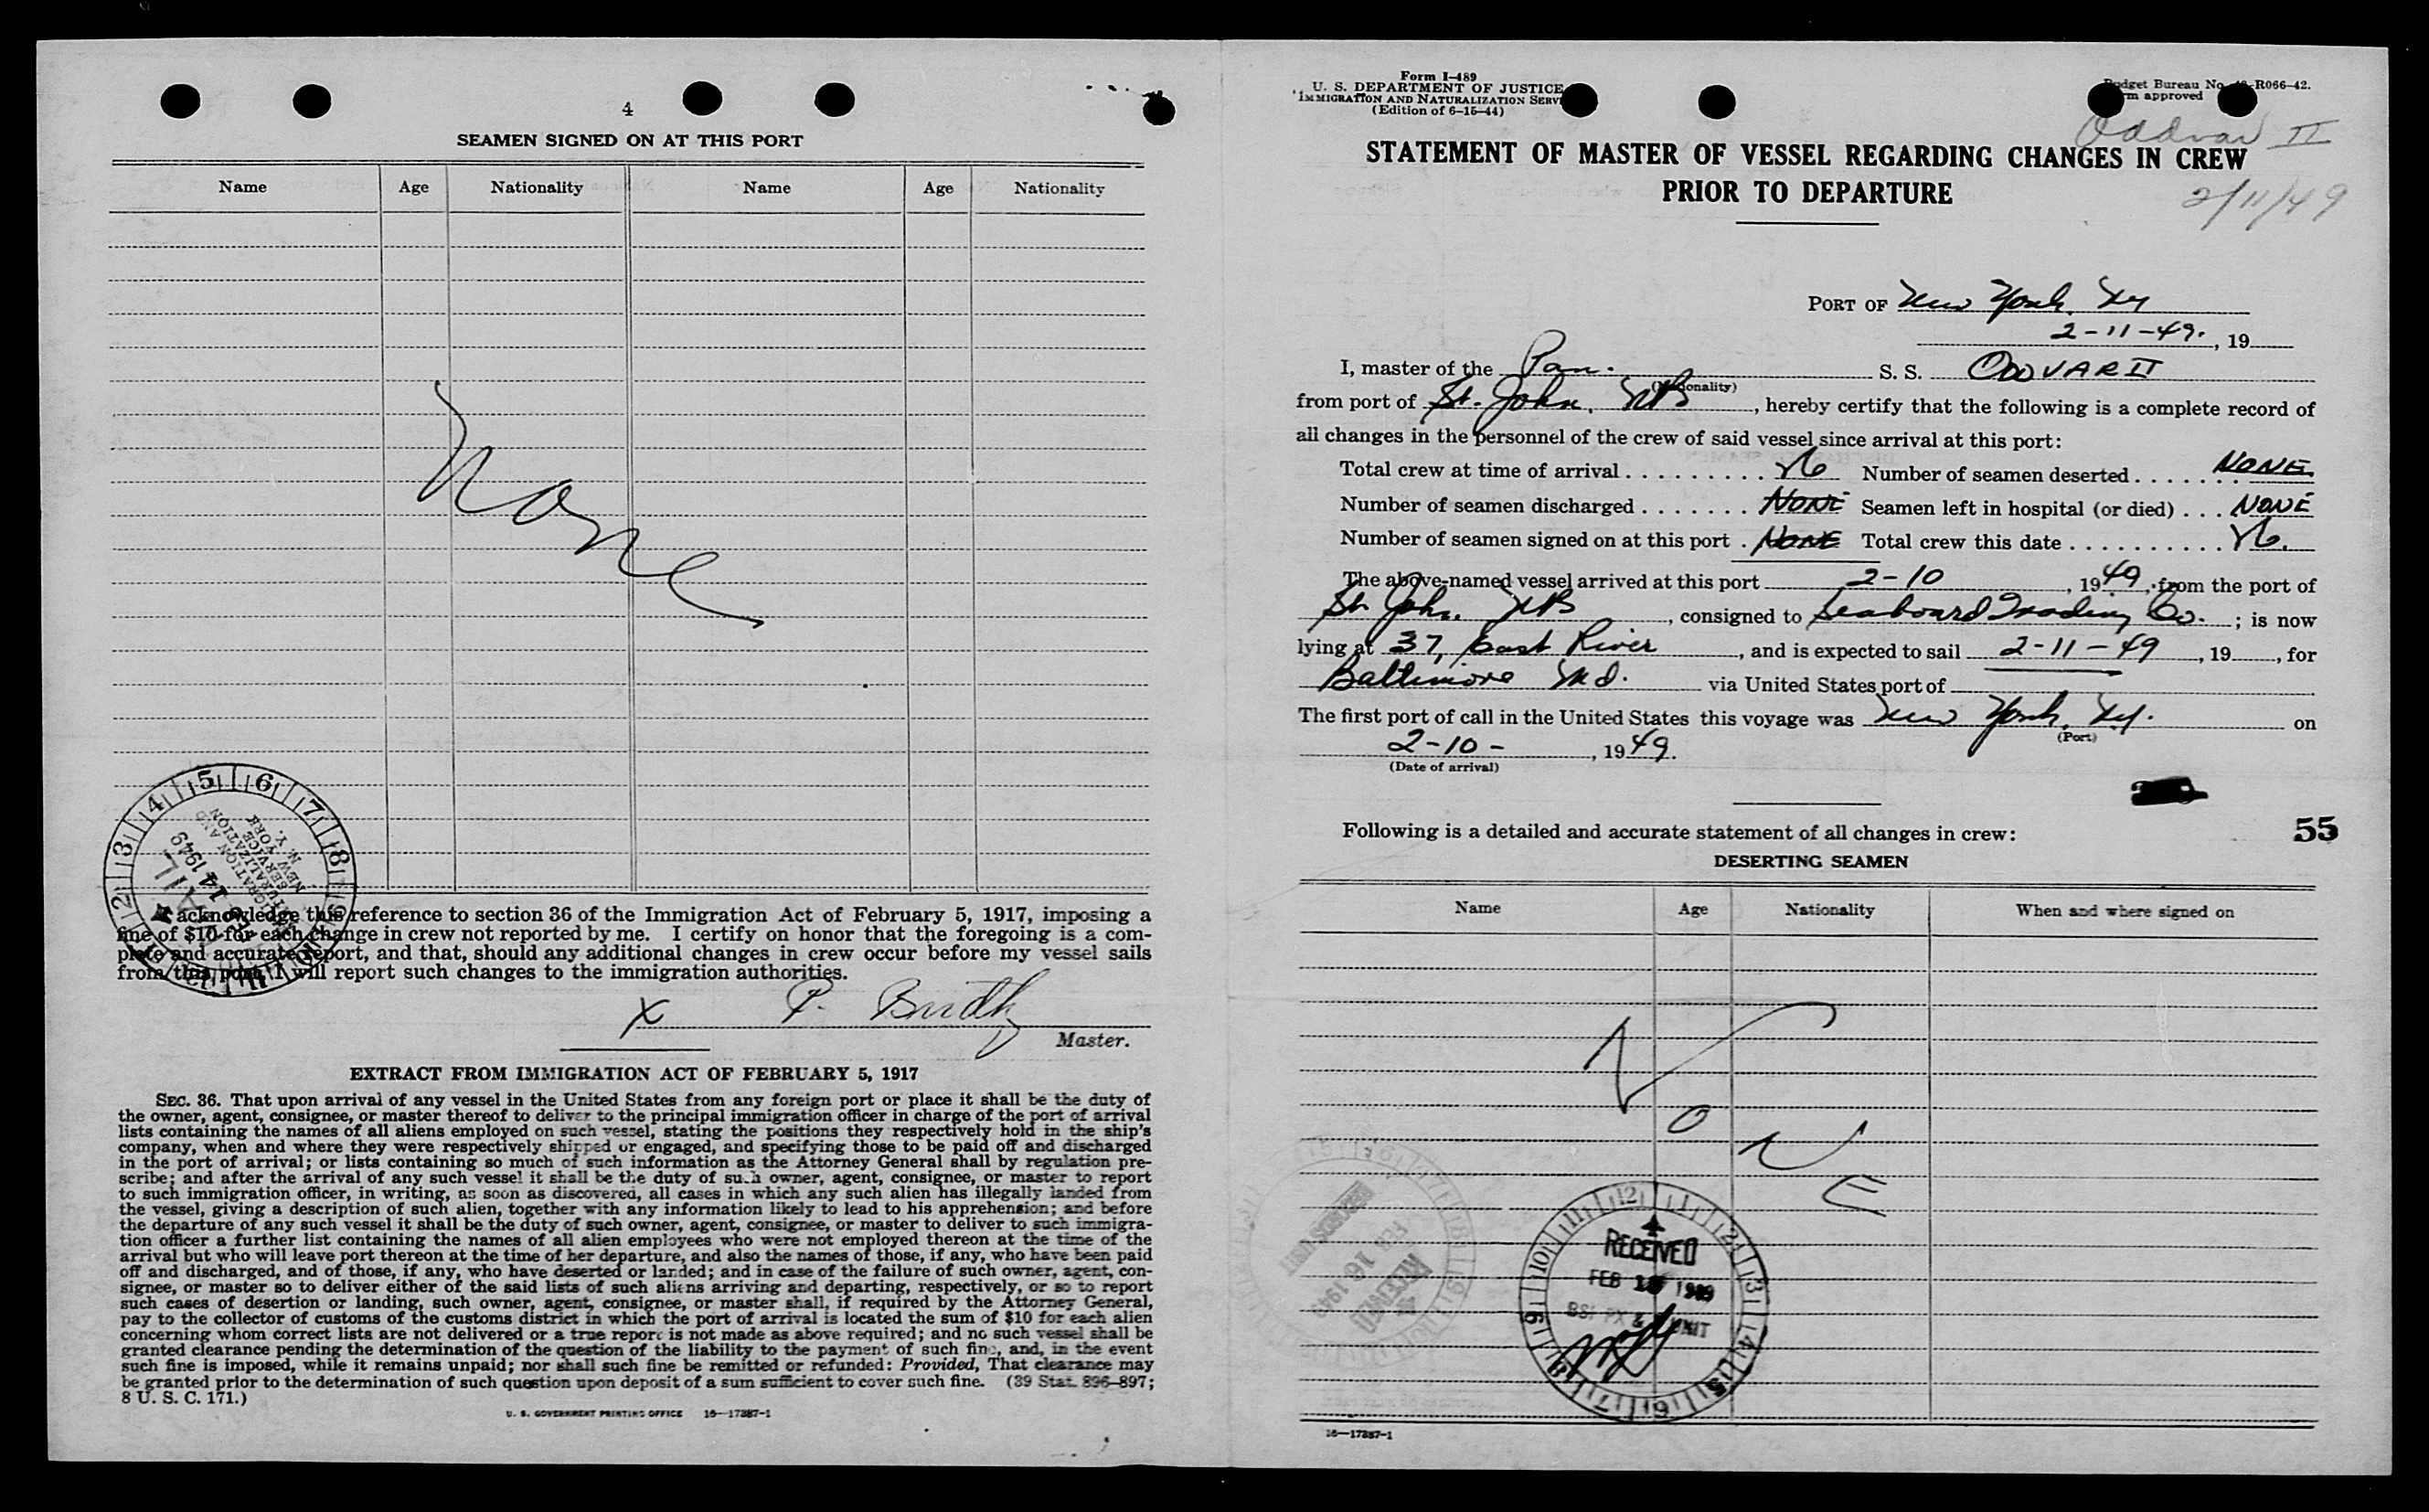 4
SEAMEN SIGNED ON AT THIS PORT
Name Age Nationality Name Age Nationality
None
I acknowledge this reference to section 36 of the Immigration Act of February 5, 1917, imposing a
fine of $10 for each change in crew not reported by me. I certify on honor that the foregoing is a com-
plete and accurate report, and that, should any additional changes in crew occur before my vessel sails
from this port, I will report such changes to the immigration authorities.
X P.
Master.
EXTRACT FROM IMMIGRATION ACT OF FEBRUARY 5, 1917
SEC. 36. That upon arrival of any vessel in the United States from any foreign port or place it shall be the duty of
the owner, agent, consignee, or master thereof to deliver to the principal immigration officer in charge of the port of arrival
lists containing the names of all aliens employed on such vessel, stating the positions they respectively hold in the ship's
company, when and where they were respectively shipped or engaged, and specifying those to be paid off and discharged
in the port of arrival; or lists containing so much of such information as the Attorney General shall by regulation pre-
scribe; and after the arrival of any such vessel it shall be the duty of such owner, agent, consignee, or master to report
to such immigration officer, in writing, as soon as discovered, all cases in which any such alien has illegally landed from
the vessel, giving a description of such alien, together with any information likely to lead to his apprehension; and before
the departure of any such vessel it shall be the duty of such owner, agent, consignee, or master to deliver to such immigra-
tion officer a further list containing the names of all alien employees who were not employed thereon at the time of the
arrival but who will leave port thereon at the time of her departure, and also the names of those, if any, who have been paid
off and discharged, and of those, if any, who have deserted or landed; and in case of the failure of such owner, agent, con-
signee, or master so to deliver either of the said lists of such aliens arriving and departing, respectively, or so to report
such cases of desertion or landing, such owner, agent, consignee, or master shall, if required by the Attorney General,
pay to the collector of customs of the customs district in which the port of arrival is located the sum of $10 for each alien
concerning whom correct lists are not delivered or a true report is not made as above required; and no such vessel shall be
granted clearance pending the determination of the question of the liability to the payment of such fine, and, in the event
such fine is imposed, while it remains unpaid; nor shall such fine be remitted or refunded: Provided, That clearance may
be granted prior to the determination of such question upon deposit of a sum sufficient to cover such fine. (39 Stat. 896–897;
8 U. S. C. 171.)
U. S. GOVERNMENT PRINTING OFFICE 16—17387-1
Form I-489
U. S. DEPARTMENT OF JUSTICE
IMMIGRATION AND NATURALIZATION SERV
(Edition of 6-15-44)
Budget Bureau No. R066-42.
approved
Oddvar II
2/11/49
STATEMENT OF MASTER OF VESSEL REGARDING CHANGES IN CREW
PRIOR TO DEPARTURE
PORT OF New York, NY
2-11-49, 19
I, master of the Pan. S. S. ODDVAR II
(Nationality)
from port of St. John, NB, hereby certify that the following is a complete record of
all changes in the personnel of the crew of said vessel since arrival at this port:
Total crew at time of arrival Number of seamen deserted NONE
Number of seamen discharged NONE Seamen left in hospital (or died) NONE
Number of seamen signed on at this port NONE Total crew this date
The above-named vessel arrived at this port 2-10, 1949, from the port of
St. John, NB, consigned to Seaboard Trading Co.; is now
lying at 37, East River, and is expected to sail 2-11-49, 19, for
Baltimore Md. via United States port of
The first port of call in the United States this voyage was New York, NY. on
(Port)
2-10-, 1949.
(Date of arrival)
55
Following is a detailed and accurate statement of all changes in crew:
DESERTING SEAMEN
Name Age Nationality When and where signed on
NONE
RECEIVED
FEB 16 1949
RECEIVED
FEB 1949
UNIT
16—17387-1